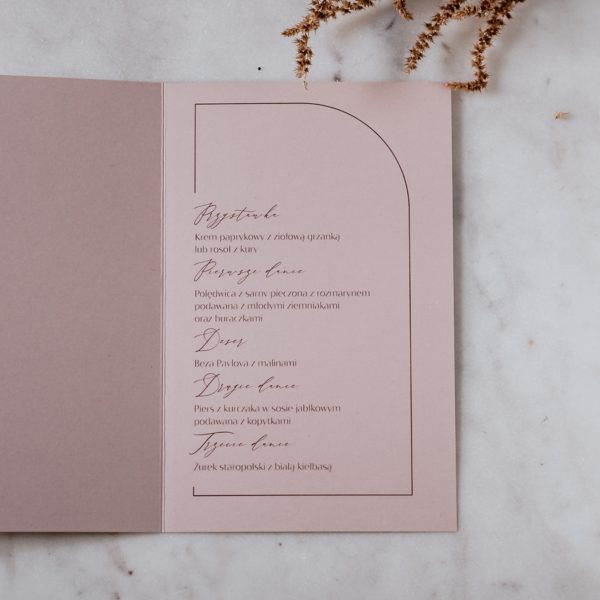 Przystawka
Krem paprykowy z ziołową grzanką
lub rosół z kury
Pierwsze danie
Polędwica z sarny pieczona z rozmarynem
podawana z młodymi ziemniakami
oraz buraczkami
Deser
Beza Pavlova z malinami
Drugie danie
Piers z kurczaka w sosie jabłkowym
podawana z kopytkami
Trzecie danie
Żurek staropolski z białą kiełbasą